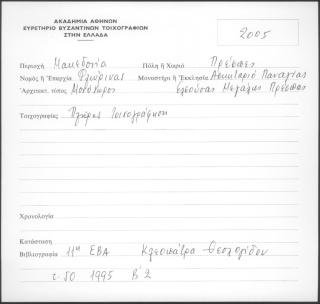 ΑΚΑΔΗΜΙΑ ΑΘΗΝΩΝ
ΕΥΡΕΤΗΡΙΟ ΒΥΖΑΝΤΙΝΩΝ ΤΟΙΧΟΓΡΑΦΙΩΝ
ΣΤΗΝ ΕΛΛΑΔΑ
2005
Περιοχή Μακεδονία Πόλη ἤ Χωριό Πρέσπες
Νομός ἤ Ἐπαρχία Φλώρινας Μοναστήρι ἤ Ἐκκλησία Ασκηταριό Παναγίας
Ἀρχιτεκτ. τύπος Μονόχωρος Ελεούσας Μεγάλης Πρέσπας
Τοιχογραφίες Πλήρης τοιχογράφηση
Χρονολογία
Κατάσταση
Βιβλιογραφία 11η ΕΒΑ Κλεοπάτρα Θεολογίδου
τ. 50 1995 Β'2